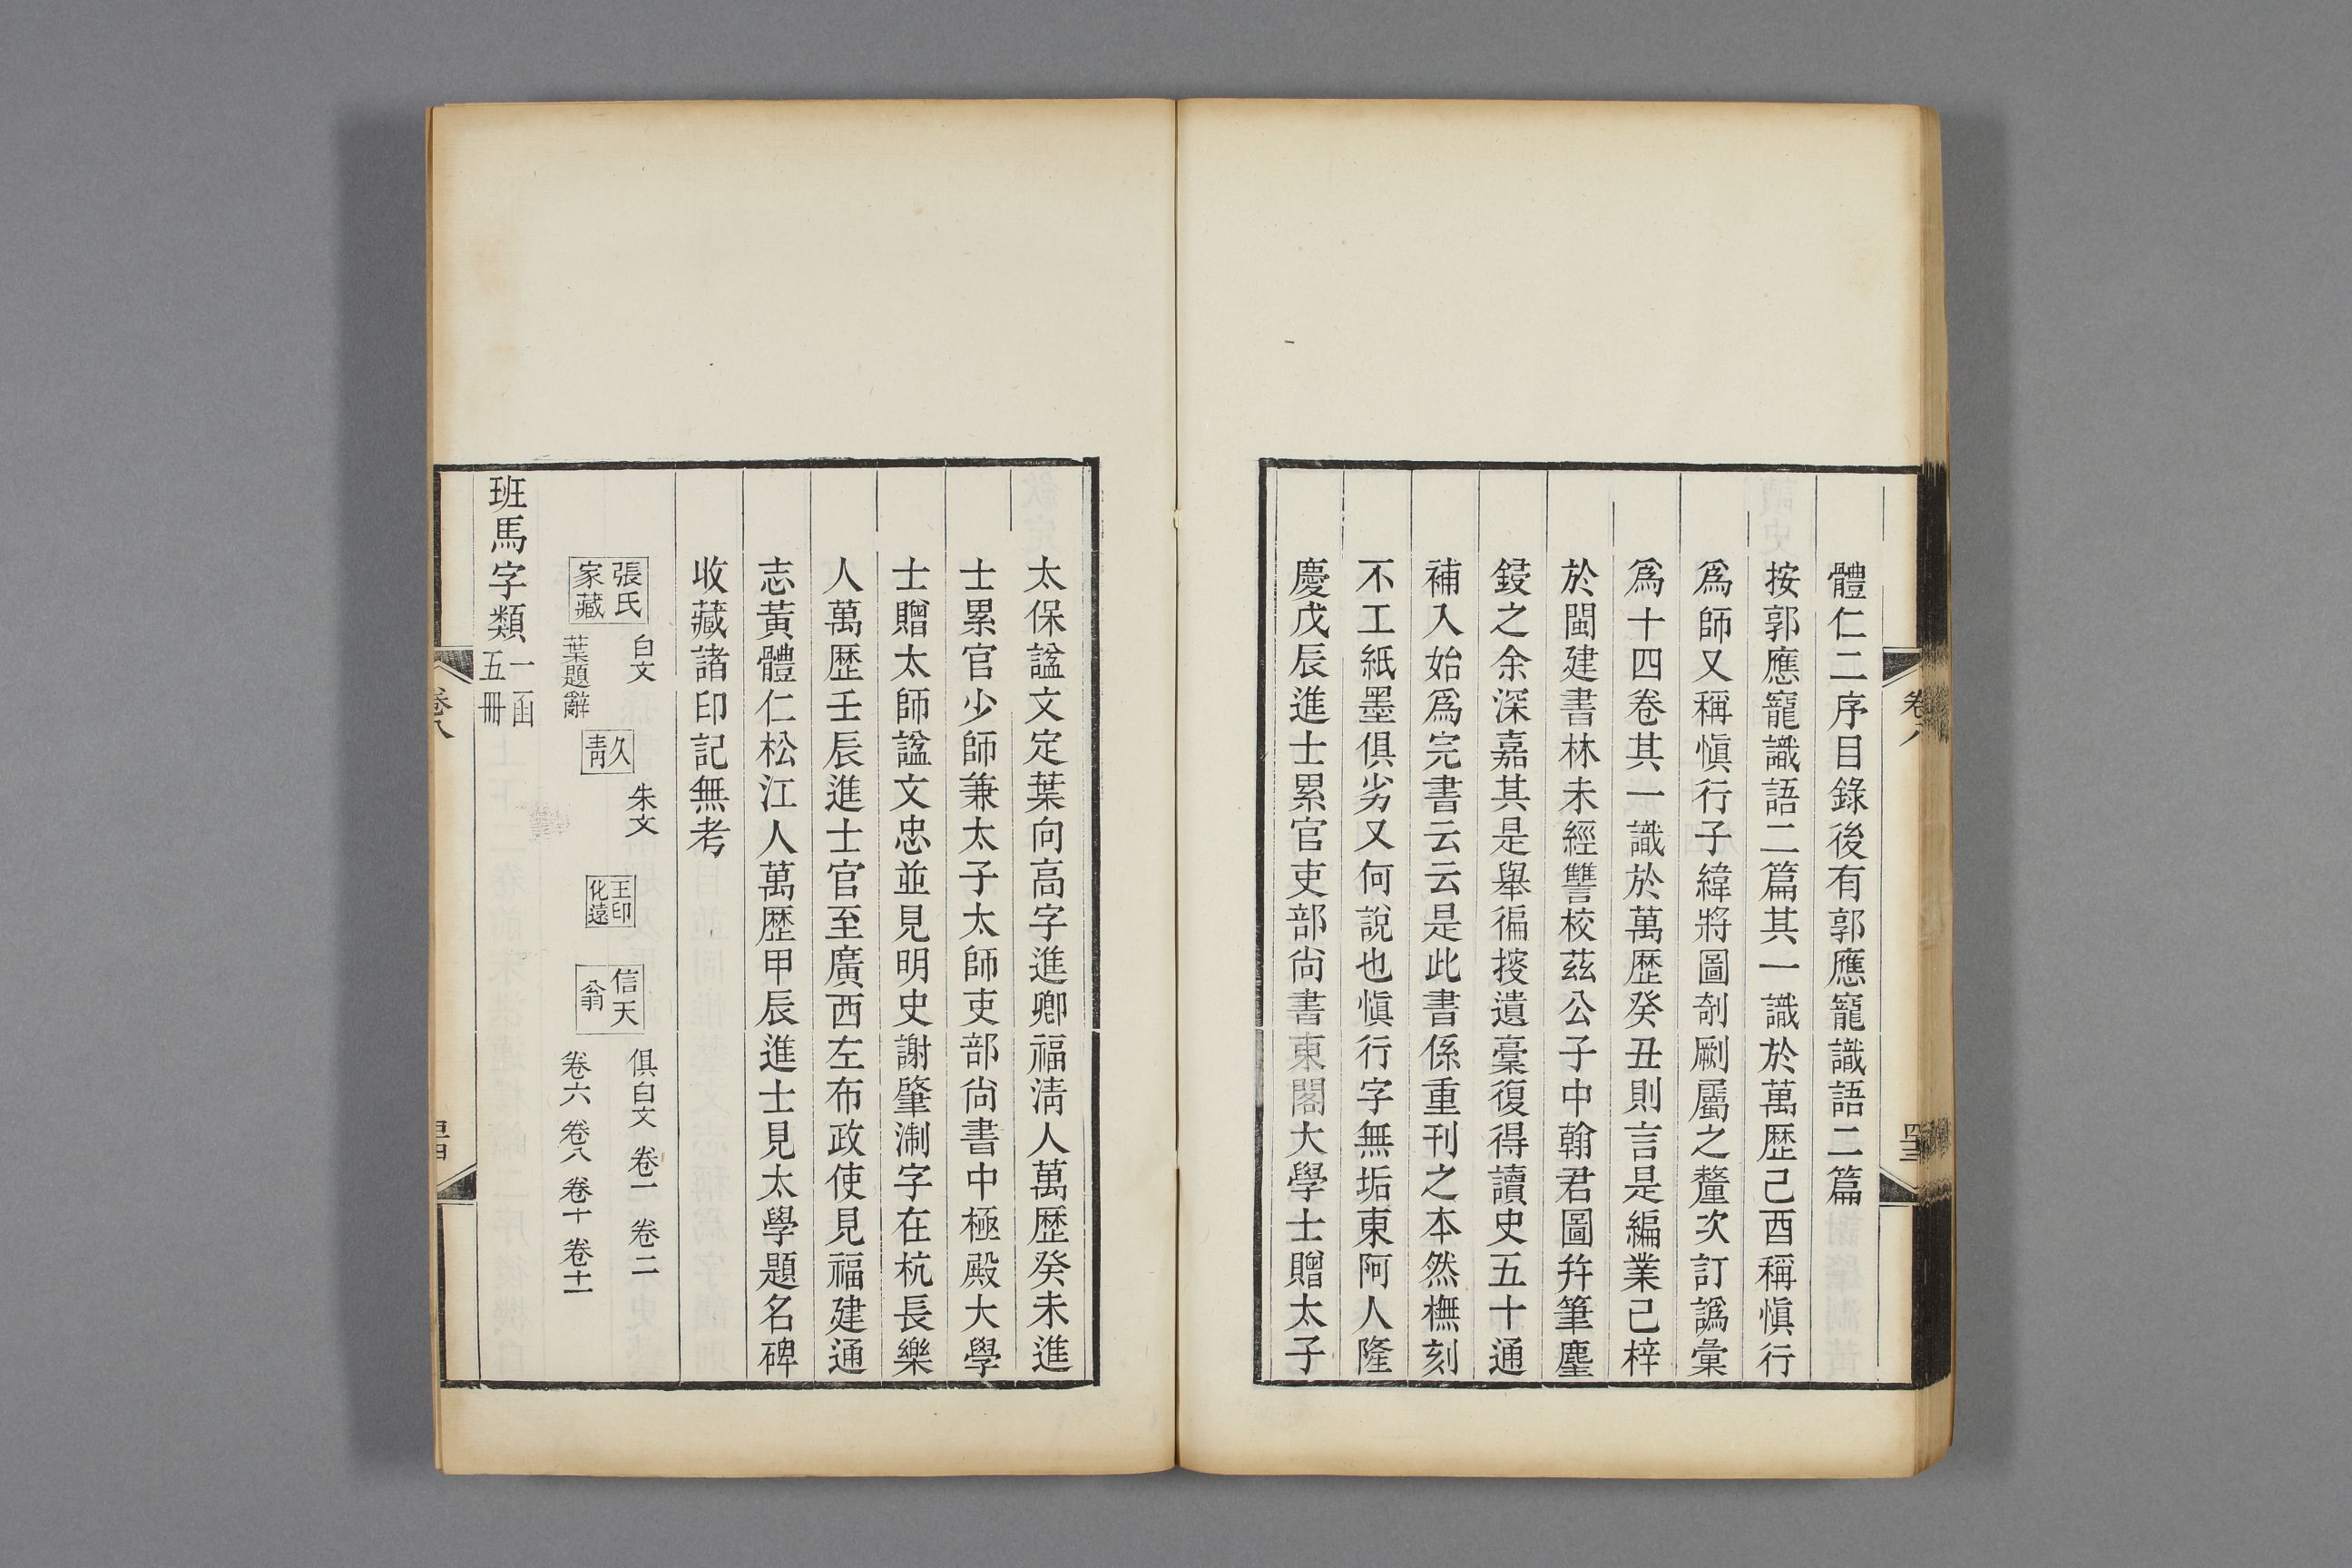 體仁二序目錄後有郭應寵識語二篇
按郭應寵識語二篇其一識於萬歷己酉稱慎行
爲師又稱慎行子緯將圖剞劂屬之釐次訂譌彙
爲十四卷其一識於萬歷癸丑則言是編業已梓
於閩建書林未經讐校茲公子中翰君圖幷筆麈
鋟之余深嘉其是舉徧按遺稾復得讀史五十通
補入始爲完書云云是此書係重刊之本然橅刻
不工紙墨俱劣又何說也慎行字無垢東阿人隆
慶戊辰進士累官吏部尙書東閣大學士贈太子
卷八
四十三
太保諡文定葉向高字進卿福淸人萬歷癸未進
士累官少師兼太子太師吏部尙書中極殿大學
士贈太師諡文忠並見明史謝肇淛字在杭長樂
人萬歷壬辰進士官至廣西左布政使見福建通
志黃體仁松江人萬歷甲辰進士見太學題名碑
收藏諸印記無考
張氏家藏
白文
葉題辭
久靑
朱文
王印化遠
信天翁
俱白文 卷一 卷二
卷六 卷八 卷十 卷十一
班馬字類
一函
五冊
卷八